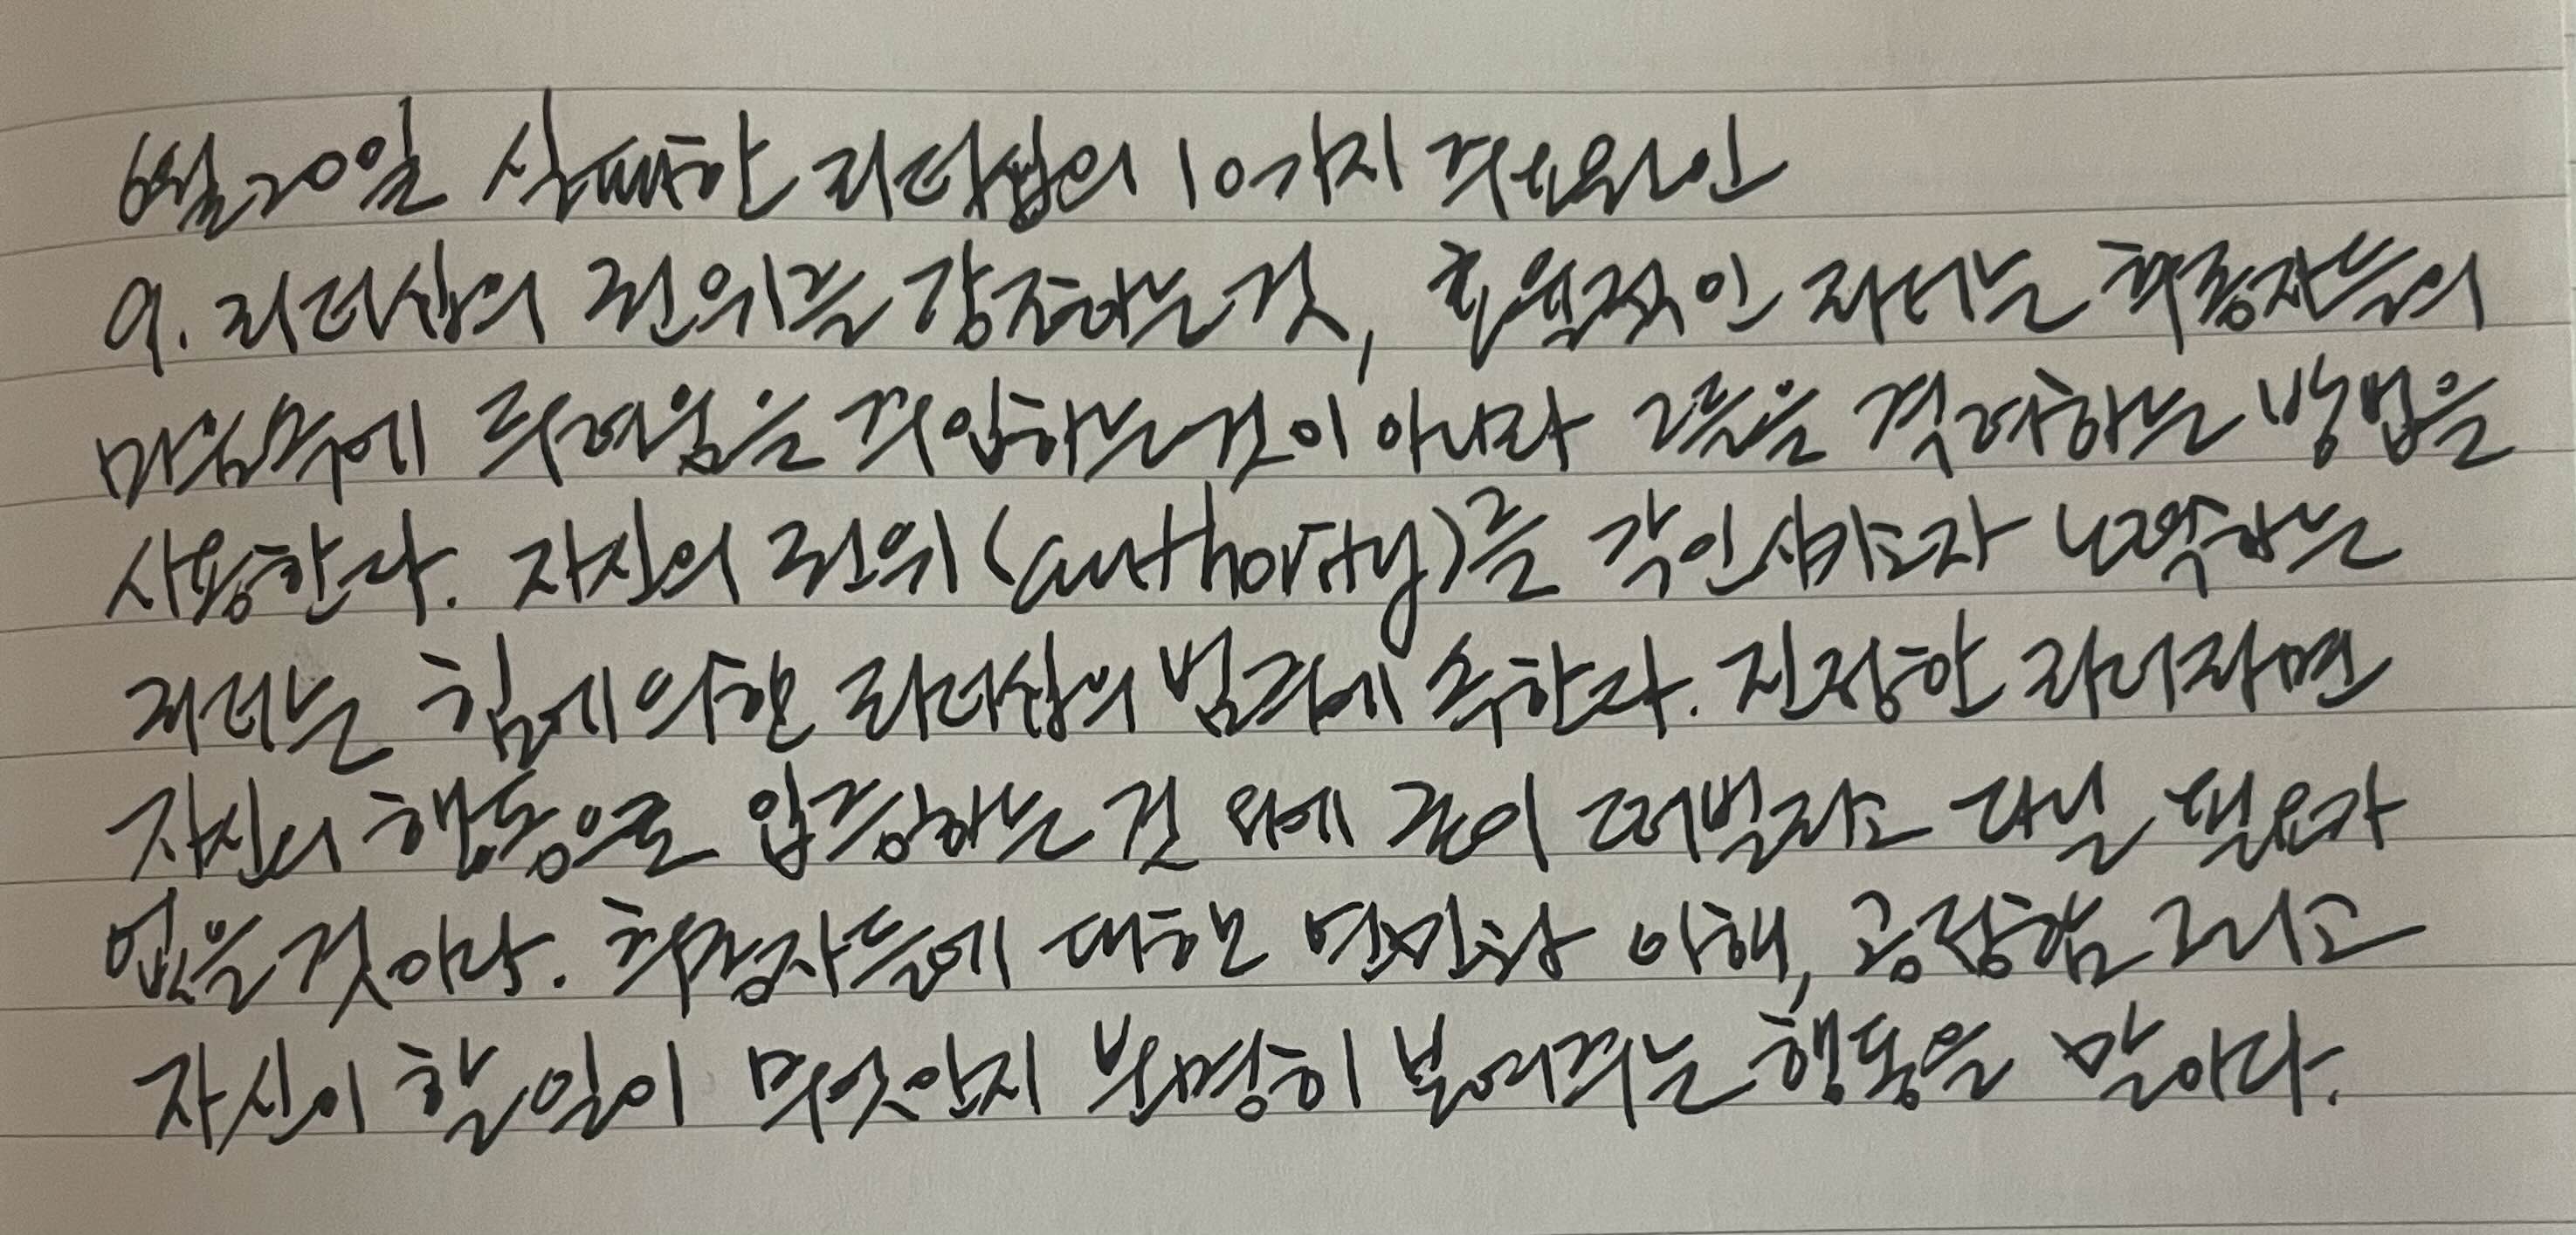 6월20일 실패한 리더쉽의 10가지 주요원인
9. 리더십의 권위를 강조하는것, 효율적인 리더는 추종자들의
마음속에 두려움을 주입하는것이 아니라 그들을 격려하는 방법을
사용한다. 자신의 권위(authority)를 각인시키고자 노력하는
리더는 힘에 의한 리더십의 범주에 속한다. 진정한 리더라면
자신의 행동으로 입증하는 것 외에 굳이 떠벌리고 다닐 필요가
없을 것이다. 추종자들에 대한 연민과 이해, 공정함 그리고
자신이 할 일이 무엇인지 분명히 보여주는 행동을 말이다.